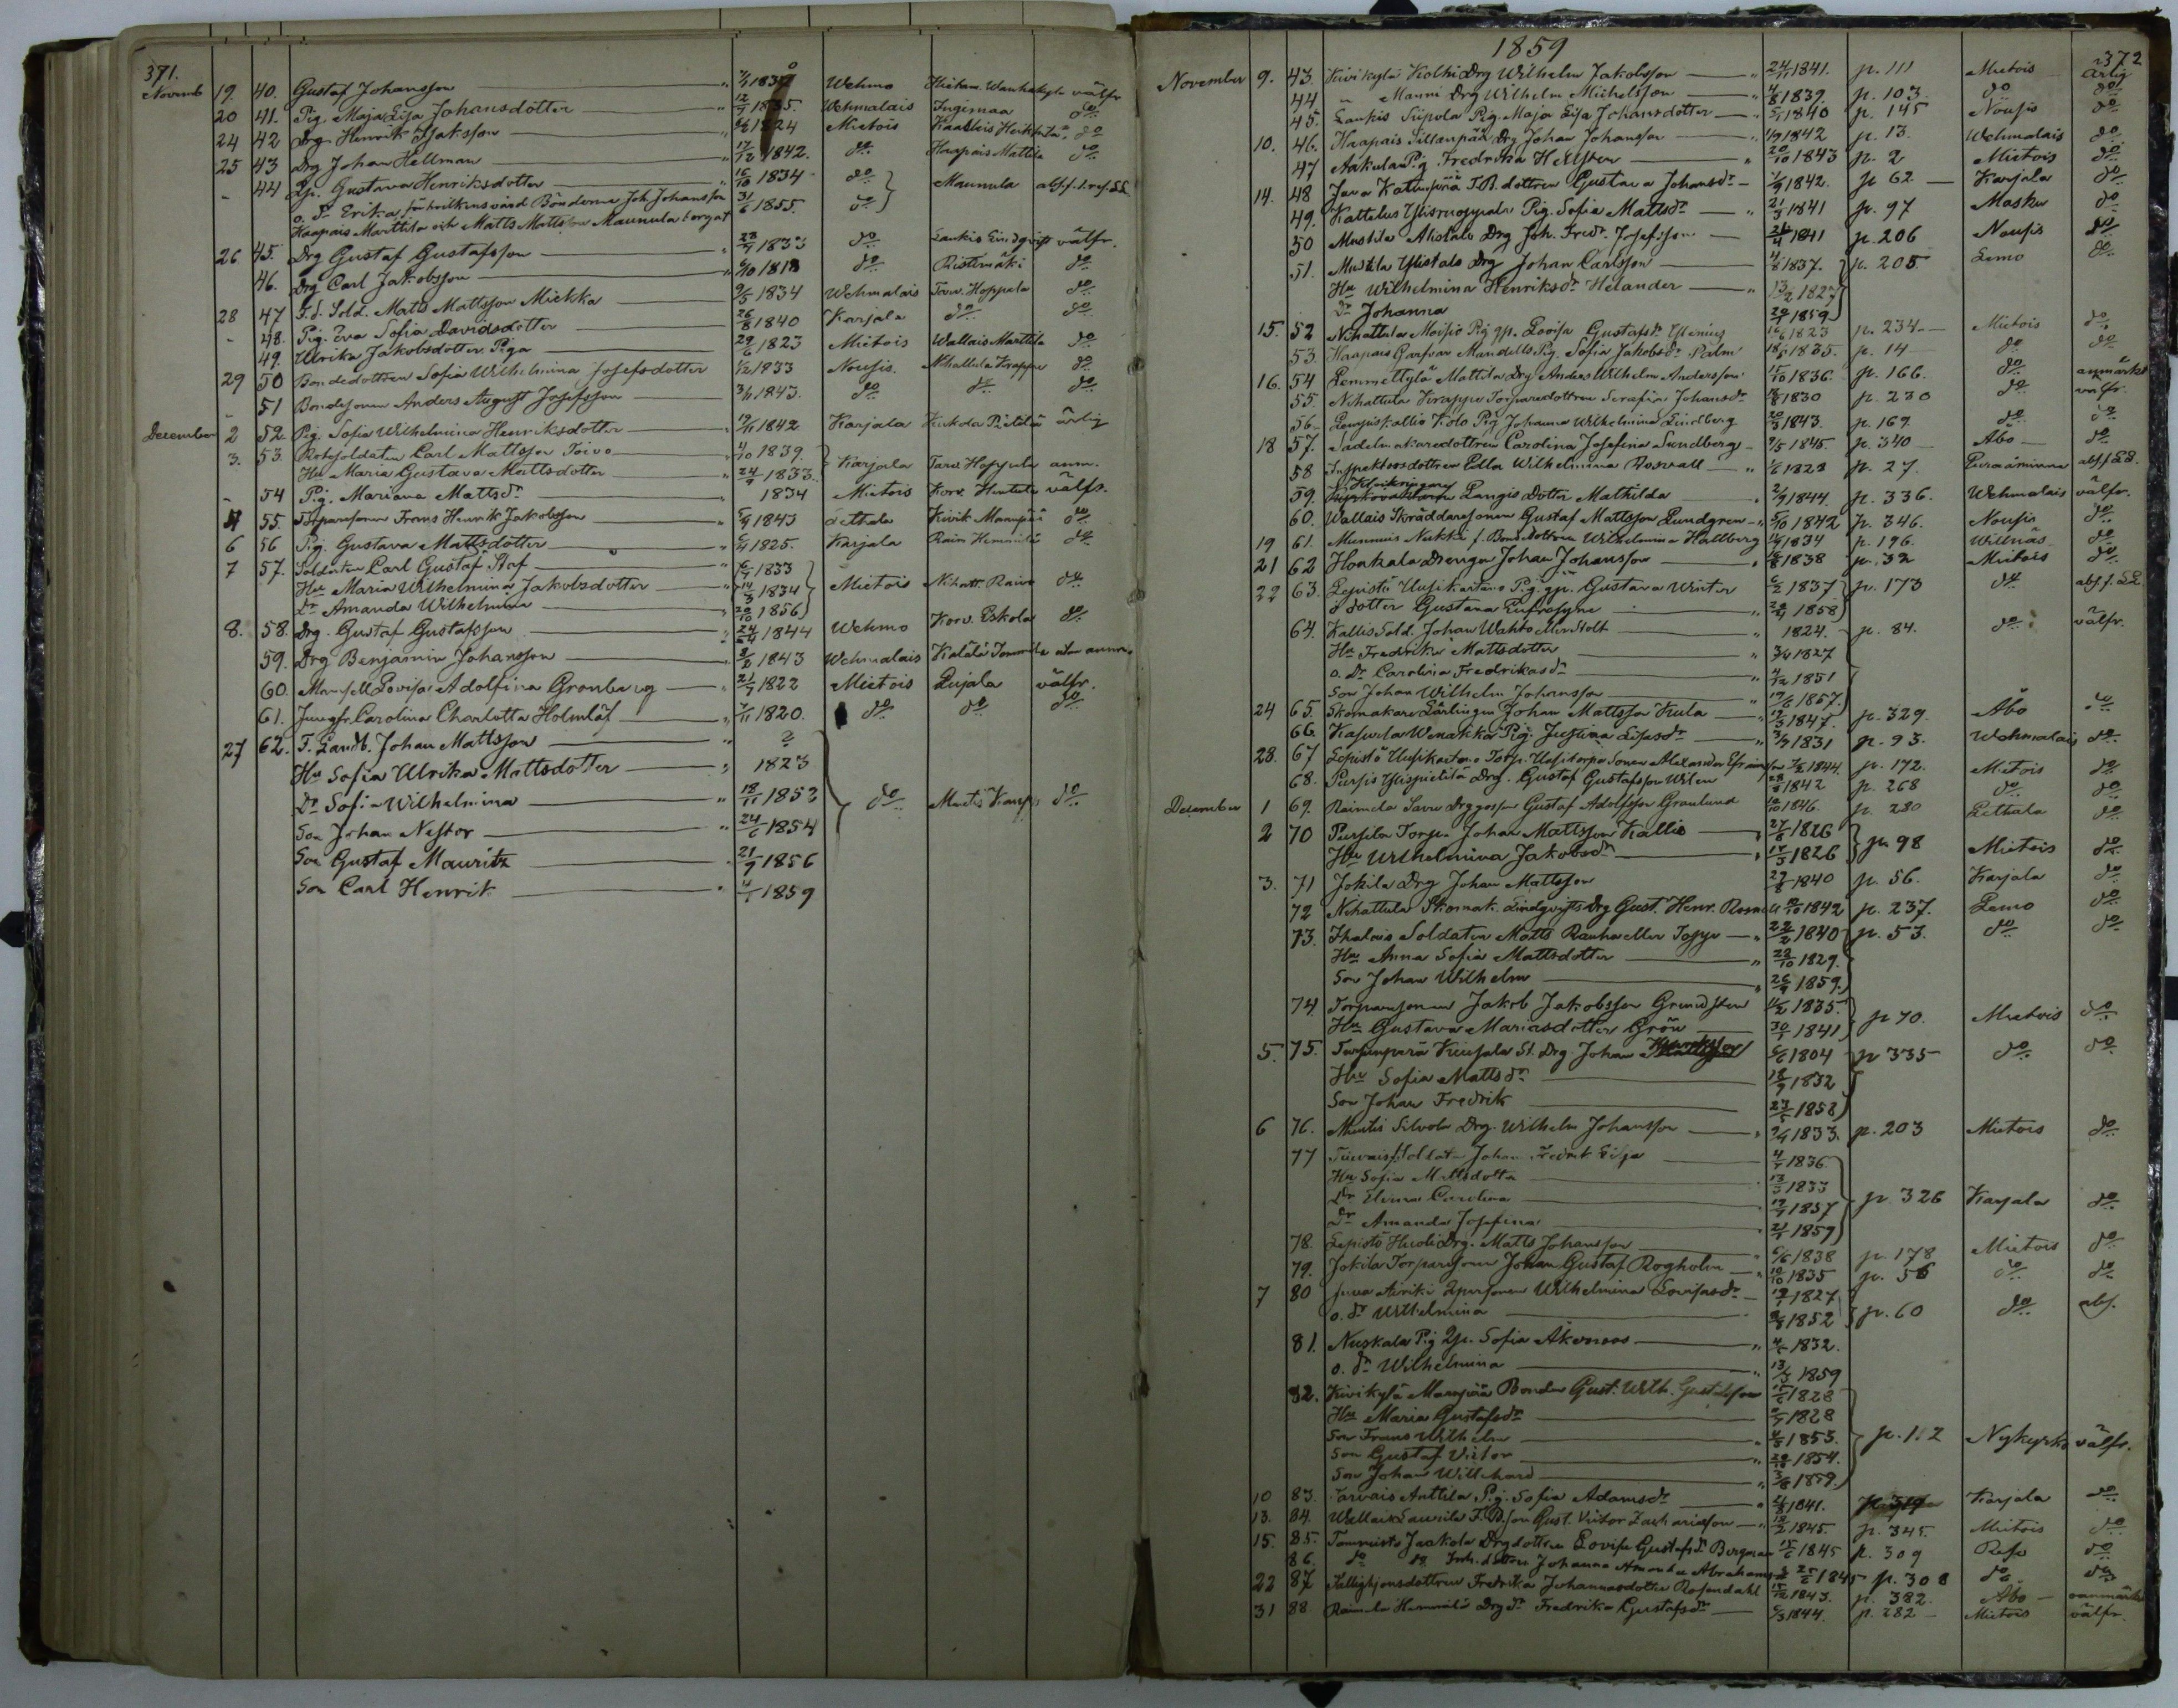 371.
Novemb 19. 40. Gustaf Johansson " 1839 Wehmo välfr
20 41. Pig. Maja Lisa Johansdotter " 12/7 1835. Wehmalais Inginmaa do
24 42 Drg Henrik Isaksson " 1824 Mietois do
25 43 Drg Johan Hellman " 17/12 1842. do Haapais Mattila do
- 44 Gustava Henriksdotter " 16/10 1834 do Maunula
o. Dr Erika för hvilkens vård Bönderne Joh. Johansson 31/6 1855. do
Haapais Marttila och Matts Mattsson Maunula borgat
26 45. Drg Gustaf Gustafsson " 28/7 1833 do Lankis Lindqvist välfr.
46. Drg Carl Jakobsson " 6/10 1818 do Ristimäki do
28 47 F.d. Sold. Matts Mattsson Miekka 9/5 1834 Wehmalais Hoppula do
- 48. Pig. Eva Sofia Davidsdotter 26/8 1840 Karjala do do
49. Ulrika Jakobsdotter Piga 29/6 1823 Mietois Wallais Marttila do
29 50 Bondedottren Sofia Wilhelmina Josefsdotter 1/12 1833 Nousis. Nihattula Krappe do
- 51 Bondesonen Anders August Josefsson 3/11 1843. do do do
December 2 52. Pig. Sofia Wilhelmina Henriksdotter 19/11 1842 Karjala ärlig
3. 53. Rotesoldaten Carl Mattsson Toivo 4/10 1839. Karjala Tarv. Hoppula anm.
Hu Maria Gustava Mattsdotter " 24/9 1833.
- 54 Pig. Mariana Mattsdr " 1834 Mietois Korv. välfr.
4 55. Torparesonen Frans Henrik Jakobsson " 5/9 1843 Lethala Kivik Manpää do
6 56 Pig. Gustava Mattsdotter " 6/4 1825. Karjala Raim Hemmilä do
7 57. Soldaten Carl Gustaf Staf " 1833
Hu Maria Wilhelmina Jakobsdotter " 14/3 1834 Mietois Nihatt. do
Dr Amanda Wilhelmina " 20/10 1856
8. 58. Drg. Gustaf Gustafsson " 24/4 1844 Wehmo Korv. Eskola do
59. Drg Benjamin Johansson " 3/2 1843 Wehmalais anm.
60. Mamsell Lovisa Adolfina Gronberg " 21/7 1822 Mietois Lujala välfr.
61. Jungfr. Carolina Charlotta Holmlöf " 7/11 1820. do do do
27 62. F. Landb. Johan Mattsson " ?
Hu Sofia Ulrika Mattsdotter " 1823
Dr Sofia Wilhelmina " 18/11 1853 do do
Son Johan Nestor " 24/6 1854
Son Gustaf Mauritz " 21/9 1856
Son Carl Henrik " 4/1 1859
1859
372
November 9. 43. Kivikylä Kolhi Drg Wilhelm Jakobsson " 24/11 1841. p. 111 Mietois Ärlig
44 " Manni Drg Wilhelm Michelsson " 4/8 1839. p. 103. do do
45. Lankis Siipola Pig. Maja Lisa Johansdotter " 1840 p. 145 Nousis do
10. 46. Haapais Sillanpää Drg Johan Johansson " 1842 p. 13. Wehmalais do
47 Askulan Pig Fredrika Hellsten " 20/10 1843 p. 2 Mietois do
14. 48 Java Kattinpää T.B. dottren Gustava Johansdr 1/9 1842. p 62 Karjala do
49. Kattelus Pig. Sofia Mattsdr " 21/3 1841 p. 97 Masku do
50 Mustila Alistalo Drg Joh. Fredr. Josefsson 1841 p. 206 Nousis do
51. Mustila Ylistalo Drg Johan Carlsson 4/8 1837. p. 205 Lemo do
Hu Wilhelmina Henriksdr Helander " 13/2 1827
Dr Johanna 20/1 1859
15. 52 Nihattula Moisio Pig gf. Lovisa Gustafsdr 16/6 1823 p. 234 Mietois do
53. Haapais Garfvar Mandells Pig. Sofia Jakobsdr Palm 18/5 1835. p. 14 do do
16. 54 Lemmettylä Mattila Drg Anders Wilhelm Andersson 15/10 1836 p. 166. do anmärkt
55. Nihattula Krappe Torparedottren Serafia Johansdr 1830 p. 230 do välfr.
56. Kolo Pig Johanna Wilhelmina Lindberg 20/3 1843. p. 169 do do
18 57. Sadelmakaredottren Carolina Josefina Sundberg 9/5 1845. p. 340 Åbo do
58 Inspektorsdottren Edla Wilhelmina Rosvall " 1823 p. 27. Euraåminne
59. Klockringare Langis Dotter Mathilda 2/9 1844. p. 336. Wehmalais välfr.
60. Wallais Skräddaresonen Gustaf Mattsson Lundgren 5/10 1842 p. 346. Nousis do
19 61. Munnuis Nukka f. Bondedottren Wilhelmina Hallberg 14/4 1834 p. 196. Willnäs do
21 62 Honkala Drengen Johan Johansson " 1838 p. 32 Mietois do
22 63. Lepistö Uusikartano Pig gp. Gustava Winter 1837 p. 173 do
o dotter Gustava Eufrosyne 1858
64. Kallis Sold. Johan Wahto " 1824. p. 84. do välfr.
Hu Fredrika Mattsdotter " 3/4 1827
o. Dr Carolina Fredrikasdr " 4/12 1851
Son Johan Wilhelm Johansson " 19/6 1857.
24 65. Skomakare Lärlingen Johan Mattsson Kula 1847. p. 329. Åbo do
66. Kasurla Wenakka Pig. Justina Lisasdr " 3/9 1831 p. 93. Wehmalais do
28. 67 Lepistö Uusikartano Torp. Sonen Alexander Efraimsson 1844. p. 172. Mietois do
68. Drg. Gustaf Gustafsson Wilen 1842 p. 268 do do
December 1 69. Raimela Gustaf Adolfsson Gronlund 1846. p. 280 Lethala do
2 70 Pursila Torp. Johan Mattsson Kallio 27/6 1826 p. 98 Mietois do
Hu Wilhelmina Jakobsdr 1826
3. 71 Jokila Drg Johan Mattsson 29/8 1840 p. 56. Karjala do
72 Nihattula Skomak. Lindqvists Drg Gust. Henr. 1842 p. 237. Lemo do
73. Ihalais Soldaten Matts Rauha eller Toppe 22/2 1840 p. 53. do do
Hu Anna Sofia Mattsdotter " 23/10 1829.
Son Johan Wilhelm " 26/9 1859.
74. Torparesonen Jakob Jakobsson Grundsten 1835. p 70. Mietois do
Hu Gustava Mariasdotter Grön 30/1 1841
5. 75. Kiusala St. Drg Johan Henriksson 1804 p 335 do do
Hu Sofia Mattsdr 18/9 1832
Son Johan Fredrik 27/5 1858
6 76. Muntis Silvola Drg. Wilhelm Johansson 1833. p. 203 Mietois do
77 Soldat Johan Fredrik 4/1 1836
Hu Sofia Mattsdotter 13/3 1833 p. 326 Karjala do
Dr Carolina 1857
Dr Amanda Josefina 21/1 1859
78. Lepistö Huoli Drg. Matts Johansson 6/6 1838 p. 178 Mietois do
79. Jokila Torparesonen Johan Gustaf Rogholm 10/10 1835 p. 56 do do
7 80 Wilhelmina Lovisasdr 1827 p. 60 do abs.
o. dr Wilhelmina 1852
81. Nuskala Pig Qp. Sofia Åkerroos " 1832.
o. dr Wilhelmina 13/3 1859
82. Kivikylä Manpää Bonden Gust. Wilh. Gustafsson 1828
Hu Maria Gustafsdr 1828
Son Frans Wilhelm 1853. p. 112 Nykyrko välfr.
Son Gustaf Victor 1854.
Son Johan Willehard 1859.
10 83. Tarvais Anttila Pig. Sofia Adamsdr 1841. Karjala do
13. 84. Wallais Laurila F.B. son Gust. Victor Zachariasson 1845. p. 345. Mietois do
15. 85. Jaakola Drgdottren Lovisa Gustafsdr Bergman 15/6 1845 p. 309 Raso do
86. do do Inh. dottren Johanna Amanda Abrahamsdr 1845 p. 308 do do
22 87 Fattighjonsdottren Fredrika Johannasdotter Rosendahl 1843. p. 382. Åbo anmärkt
31 88 Raimela Hemmilä Drg dr Fredrika Gustafsdr 1844. p. 282 Mietois välfr.